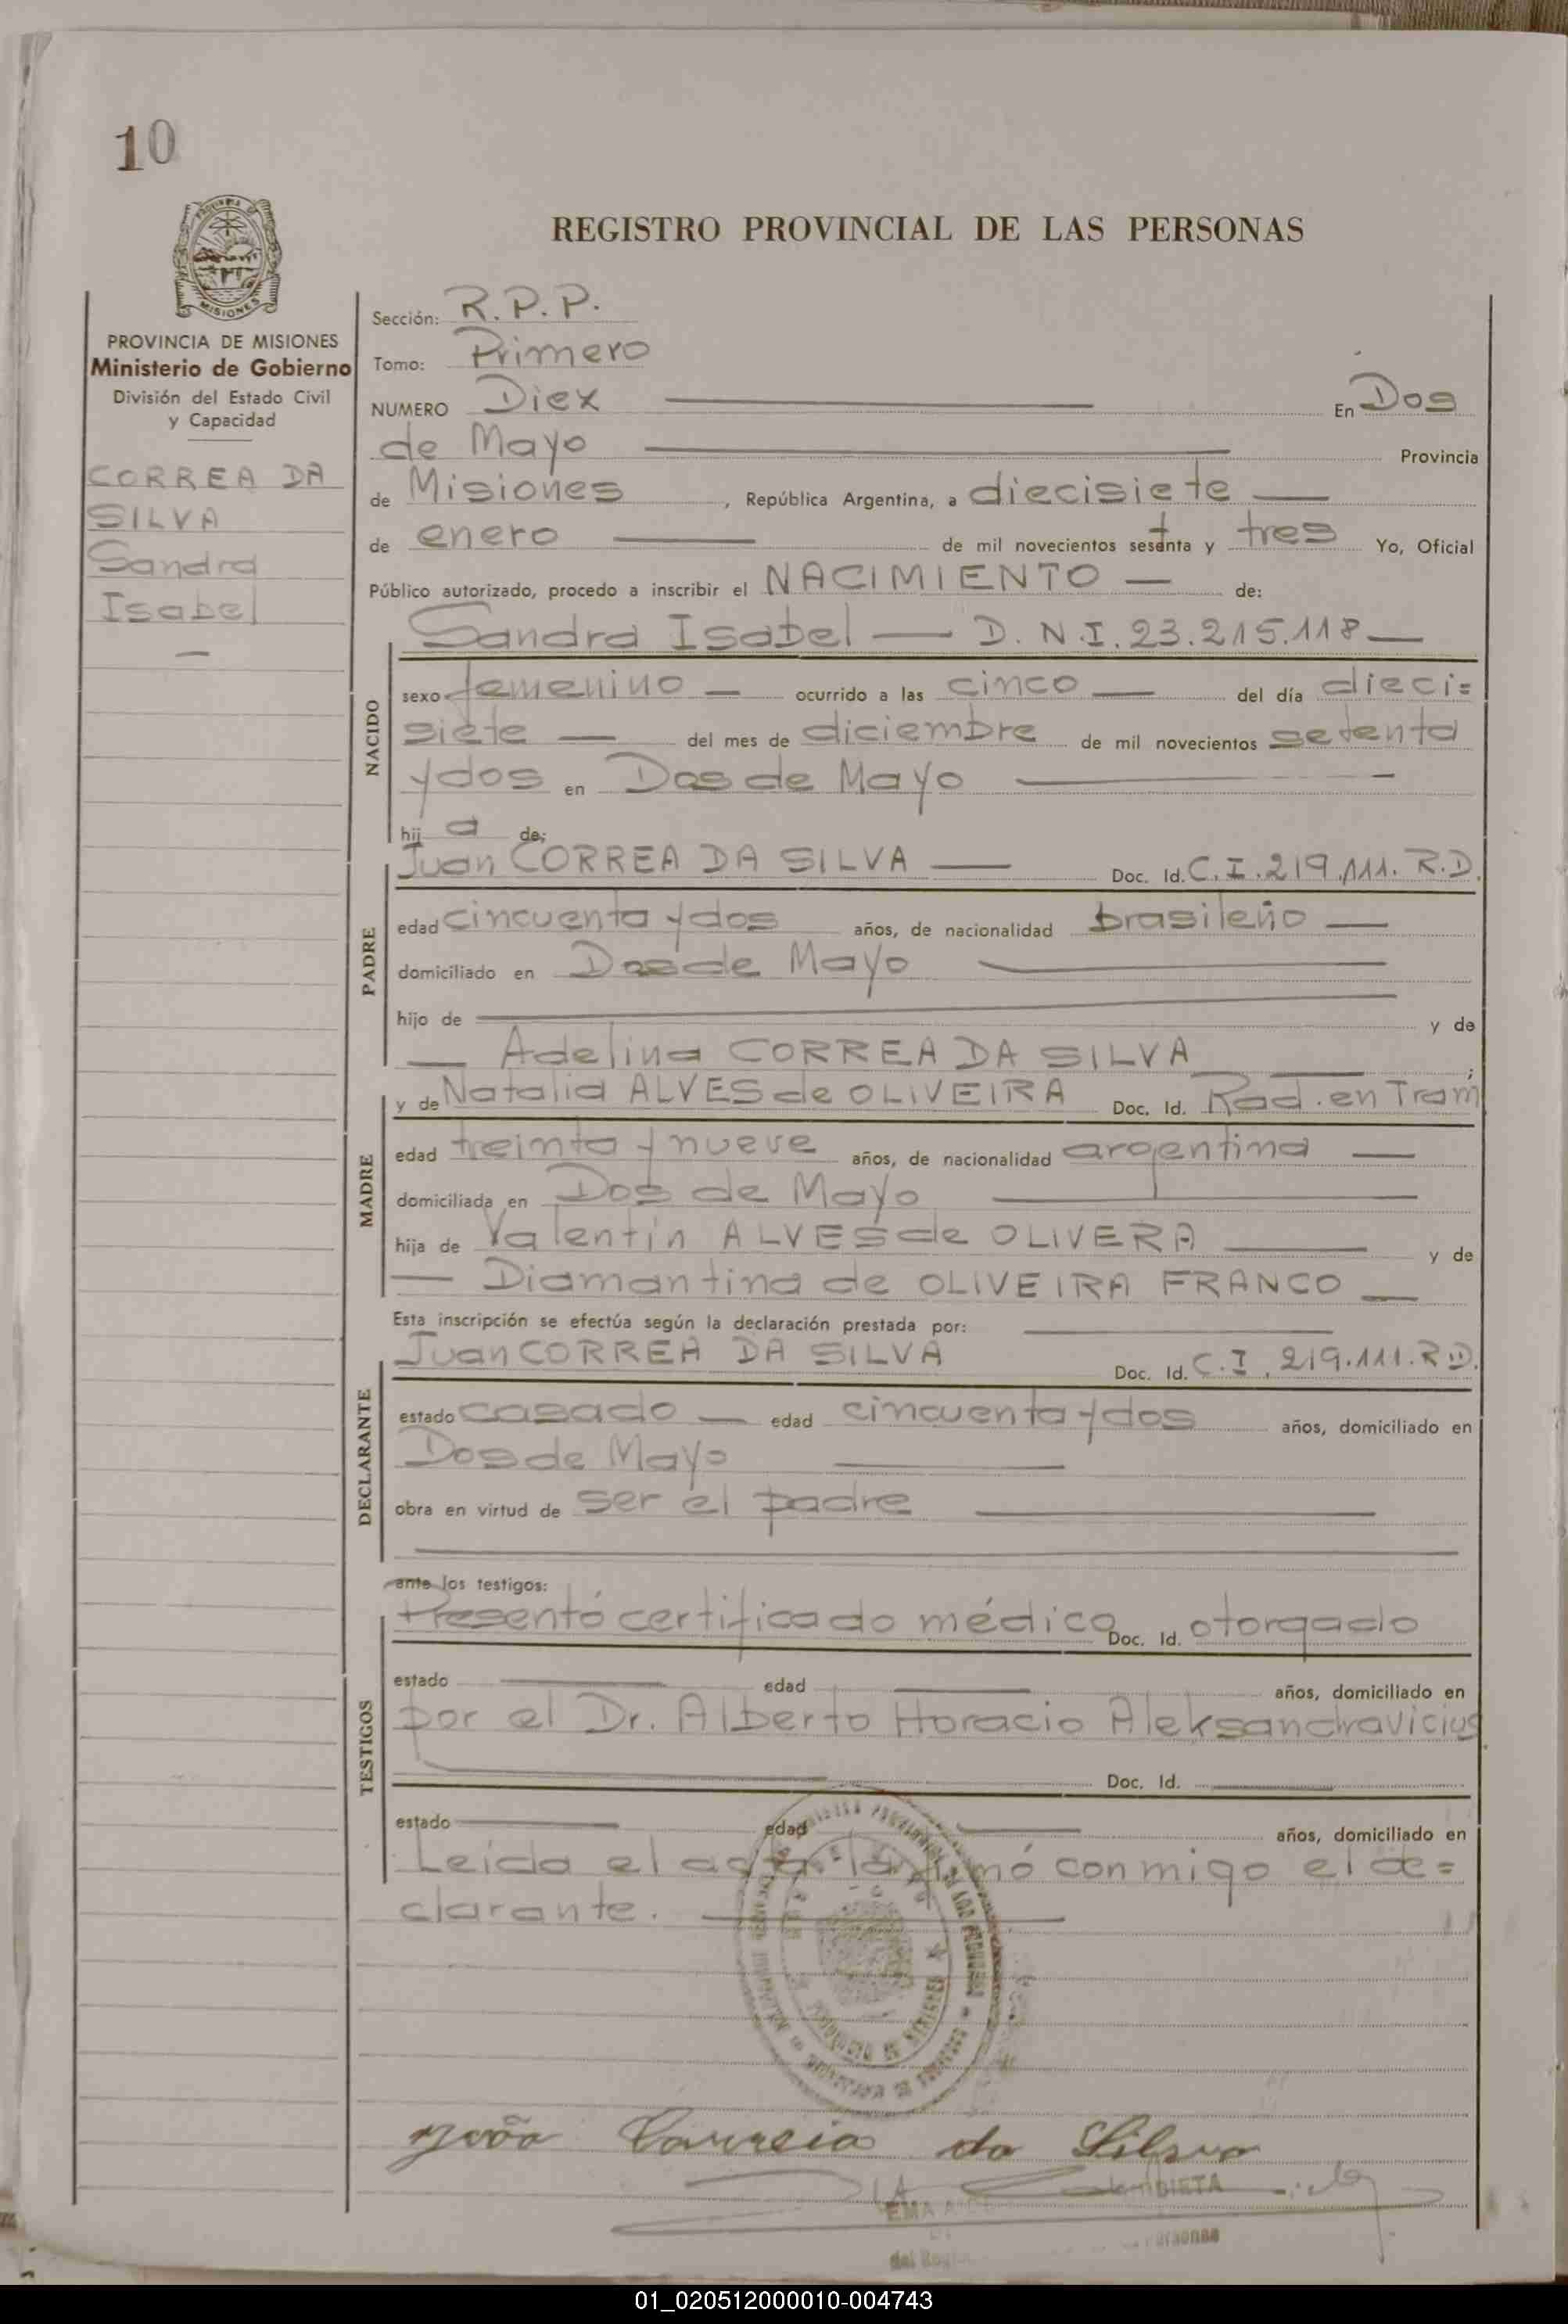 10
PROVINCIA DE
MISIONES
REGISTRO PROVINCIAL DE LAS PERSONAS
PROVINCIA DE MISIONES
Ministerio de Gobierno
División del Estado Civil
y Capacidad
CORREA DA
SILVA
Sandra
Isabel
Sección: R.P.P.
Tomo: Primero
NUMERO Diez En Dos
de Mayo Provincia
de Misiones , República Argentina, a diecisiete
de enero de mil novecientos setenta y tres Yo, Oficial
Público autorizado, procedo a inscribir el NACIMIENTO de:
Sandra Isabel — D.N.I. 23.215.118
NACIDO
sexo femenino ocurrido a las cinco del día dieci=
siete del mes de diciembre de mil novecientos setenta
y dos en Dos de Mayo
hij a de:
PADRE
Juan CORREA DA SILVA Doc. Id. C.I. 219.111. R.D.
edad cincuenta y dos años, de nacionalidad brasileño
domiciliado en Dos de Mayo
hijo de y de
Adelina CORREA DA SILVA ;
MADRE
y de Natalia ALVES de OLIVEIRA Doc. Id. Rad. en Tram
edad treinta y nueve años, de nacionalidad argentina
domiciliada en Dos de Mayo
hija de Valentín ALVES de OLIVERA y de
Diamantina de OLIVEIRA FRANCO
Esta inscripción se efectúa según la declaración prestada por:
DECLARANTE
Juan CORREA DA SILVA Doc. Id. C.I. 219.111. R.D.
estado casado edad cincuenta y dos años, domiciliado en
Dos de Mayo
obra en virtud de ser el padre
ante los testigos:
TESTIGOS
Presentó certificado médico Doc. Id. otorgado
estado edad años, domiciliado en
por el Dr. Alberto Horacio Aleksandravicius
Doc. Id.
estado edad años, domiciliado en
Leída el acta la firmó conmigo el de=
clarante.
João Correia da Silva
EMA
del
01_020512000010-004743